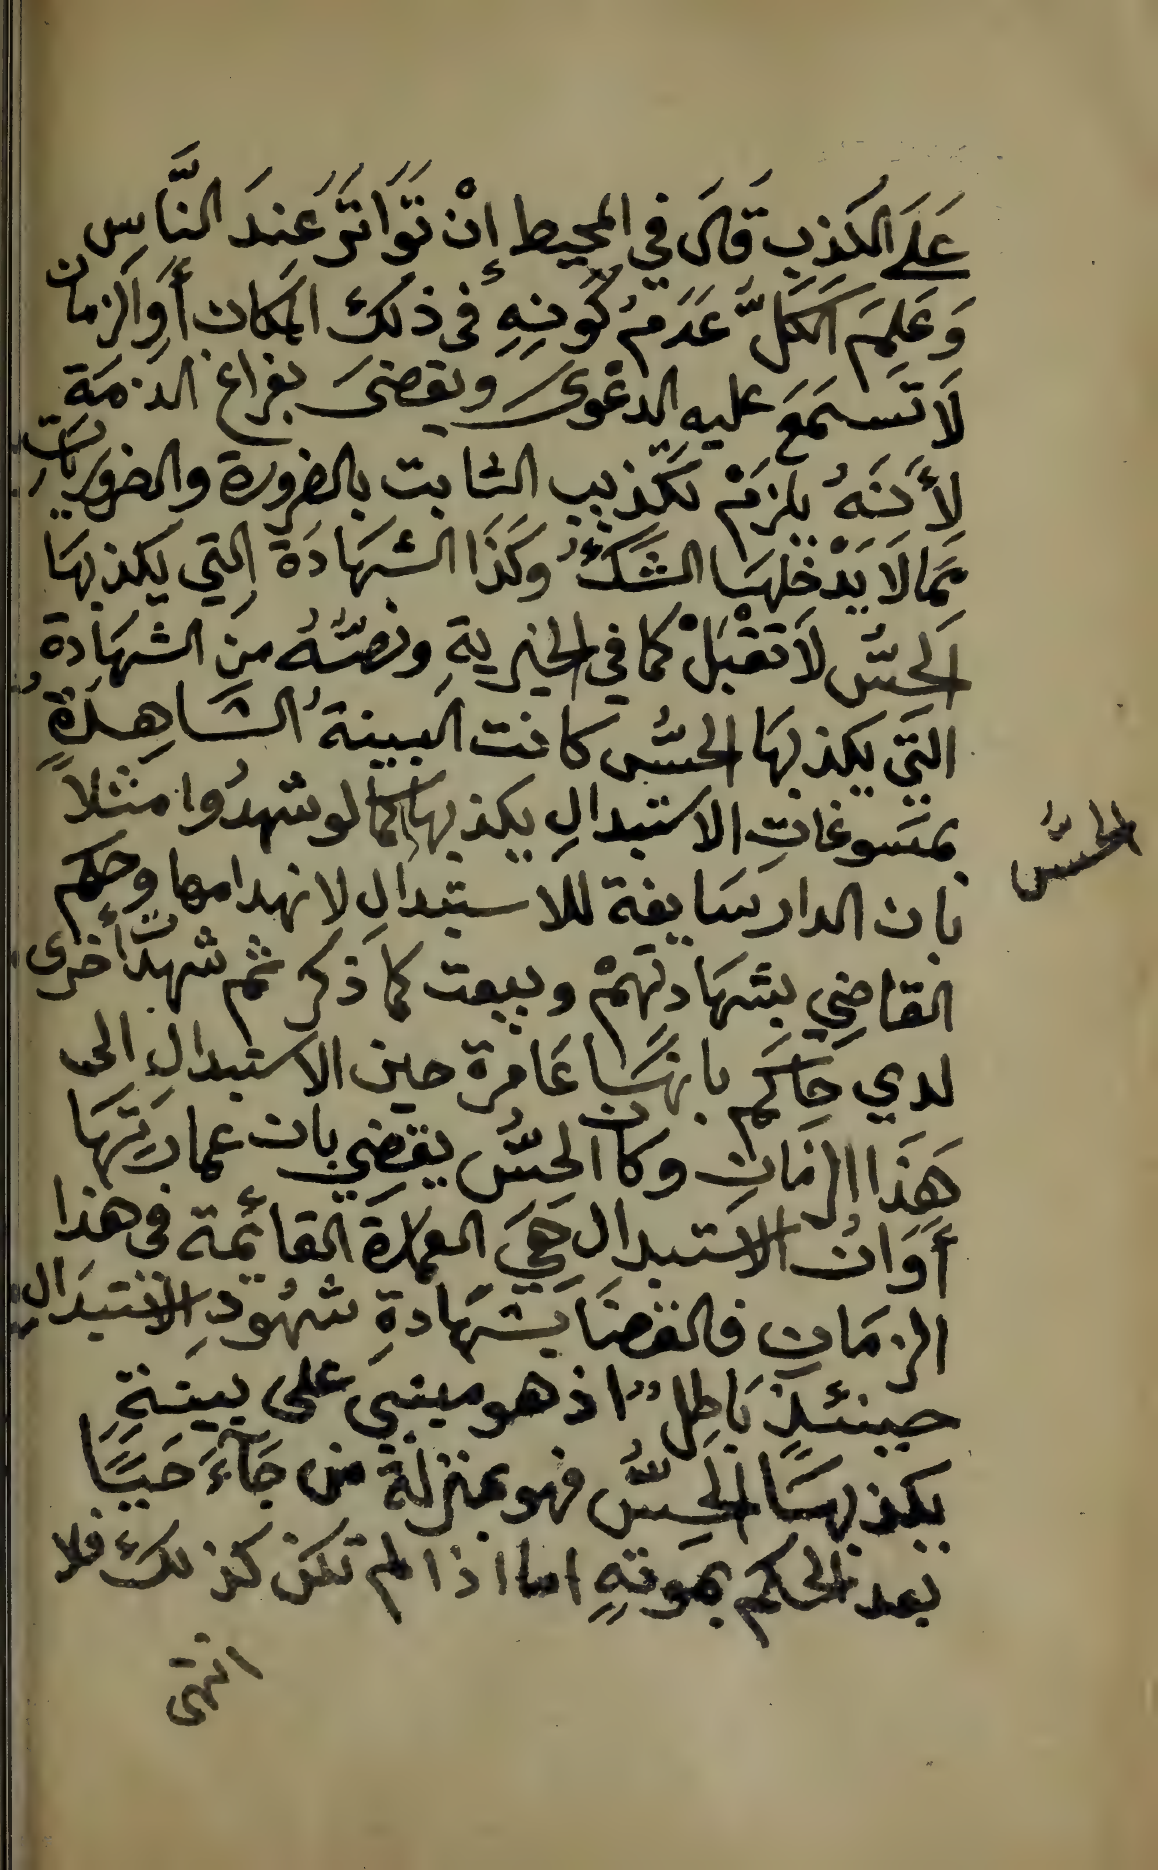 عَلَى الكَذِبِ قَالَ في المحيط إِنْ تَوَاتَرَ عِندَ النَّاسِ
وَعَلِمَ الكَلُّ عَدَمُ كَونِهِ في ذلكَ المَكان أَوِالزمان
لَا تَسمَعَ عليه الدعْوى ويقضىَ بفراغ الذمَة
لأَنَهُ يلزَمْ تكذيب الثابت بالضرورة والضروريَّاتِ
مِمَا لَا يَدْخلهَا الشَكُّ وكَذَا الشهَادَة التي يكذبهَا
الحِسُّ لَا تقْبَلْ كما في الخيريةِ ونصُّهُ مِنَ الشهَادةُ
التَي يكذبهَا الحسُّ كانت البينةُ الشَاهِدَةٍ
بمسَوغاتِ الاستبدالِ يكذبها كما لو شهدُوا مثلاً
بان الدار سَايغة للاستبدالِ لانهدامها وحكم
القاضِي بشهَادتَهمْ وبيعت كما ذَكر ثم شهدَت أخرى
لدي حَاكَم بانهَا عَامرة حين الاستبدالِ الى
هَذَا الزمَانِ وكان الحِسُّ يقضِي بان عمارَتِهَا
أَوَانُ الاستبدال هِيَ العمَارَة القائمة في هذا
الزمَانِ فالقضَا بشهَادةِ شهُودِ الاستبدَالِ
حينئذٍ بَاطِلٌ اذ هو مبنيَ على بينةٍ
يكذبهَا الحِسُّ فهو بمنزلة من جَآءَ حَيًّا
بعد الحكم بمَوتهِ اما اذا لم تكن كذلكَ فلا
انتهى
الحسُّ